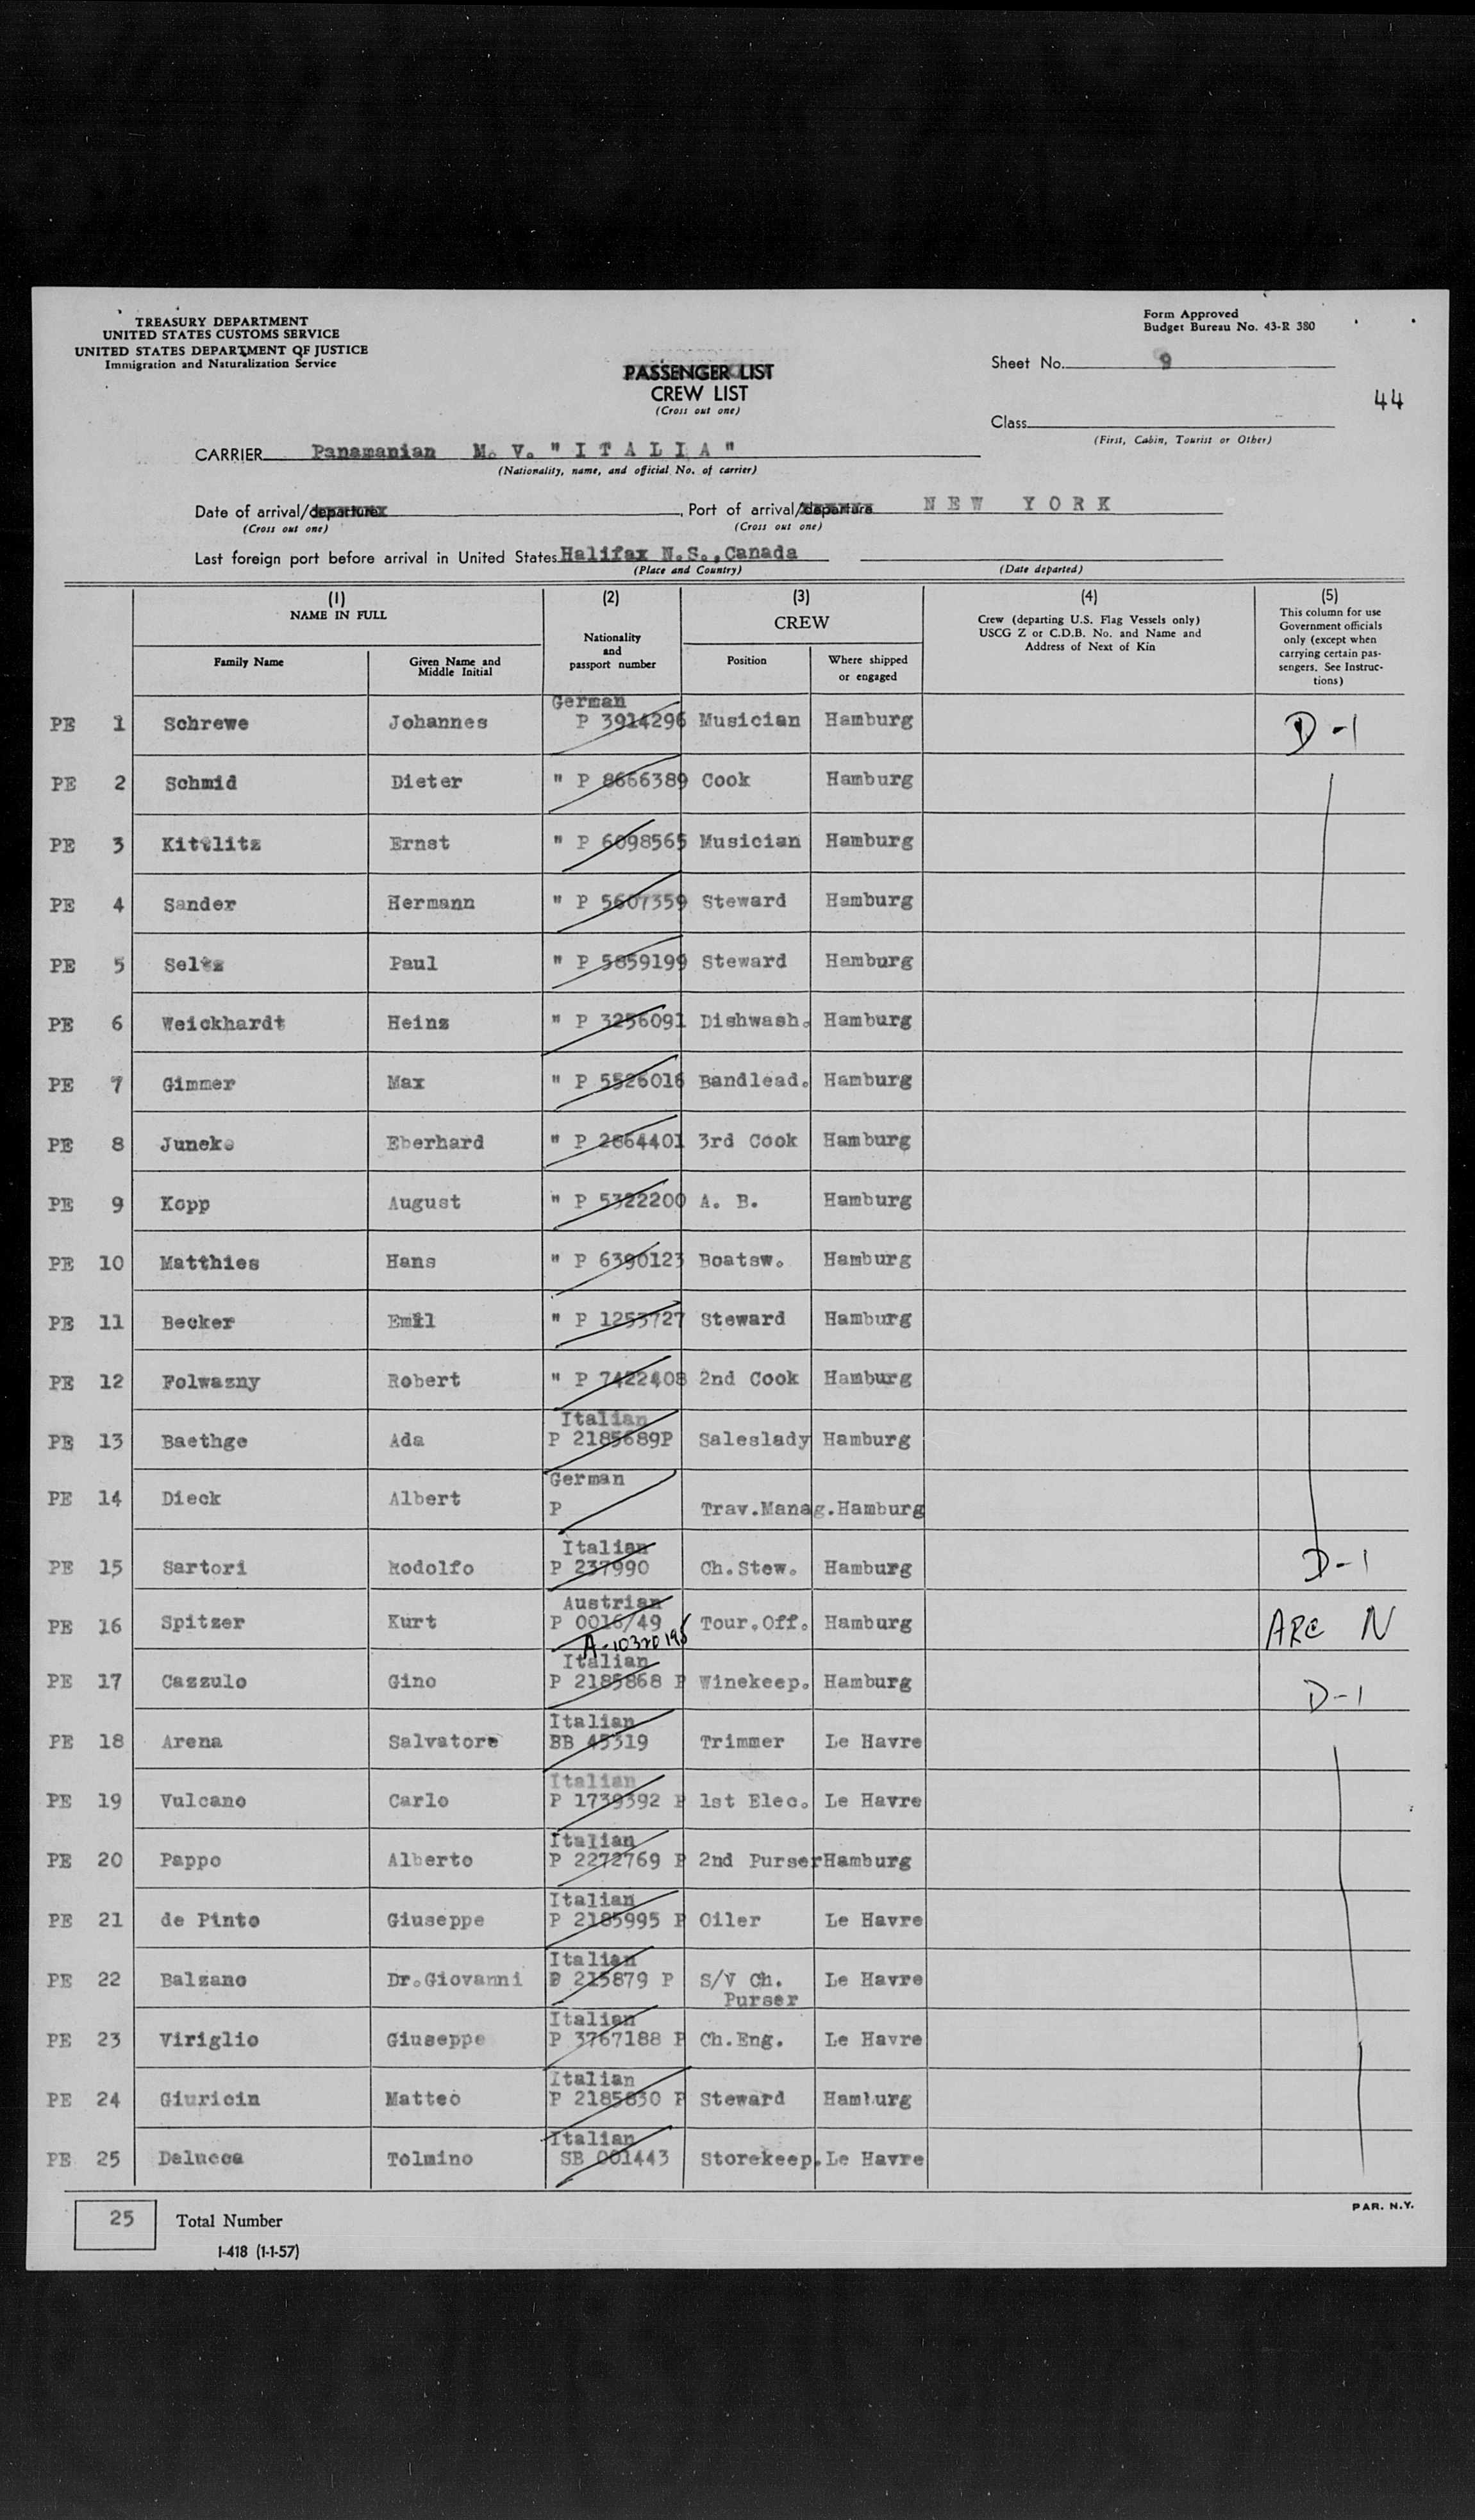 TREASURY DEPARTMENT
UNITED STATES CUSTOMS SERVICE
UNITED STATES DEPARTMENT OF JUSTICE
Immigration and Naturalization Service
Form Approved
Budget Bureau No. 43-R 380
Sheet No. 9
44
PASSENGER LIST
CREW LIST
(Cross out one)
Class
(First, Cabin, Tourist or Other)
CARRIER Panamanian M. V. " I T A L I A "
(Nationality, name, and official No. of carrier)
Date of arrival/departure , Port of arrival/departure N E W Y O R K
(Cross out one) (Cross out one)
Last foreign port before arrival in United States Halifax N.S., Canada
(Place and Country) (Date departed)
(1) NAME IN FULL
Family Name
Given Name and Middle Initial
(2)
Nationality and passport number
(3)
CREW
Position
Where shipped or engaged
(4)
Crew (departing U.S. Flag Vessels only)
USCG Z or C.D.B. No. and Name and
Address of Next of Kin
(5)
This column for use
Government officials
only (except when
carrying certain pas-
sengers. See Instruc-
tions)
PE 1 Schrewe Johannes German P 3914296 Musician Hamburg D-1
PE 2 Schmid Dieter " P 8666389 Cook Hamburg
PE 3 Kittlitz Ernst " P 6098565 Musician Hamburg
PE 4 Sander Hermann " P 5607359 Steward Hamburg
PE 5 Seltz Paul " P 5859199 Steward Hamburg
PE 6 Weickhardt Heinz " P 3256091 Dishwash. Hamburg
PE 7 Gimmer Max " P 5526016 Bandlead. Hamburg
PE 8 Juneke Eberhard " P 2864401 3rd Cook Hamburg
PE 9 Kopp August " P 5322200 A. B. Hamburg
PE 10 Matthies Hans " P 6390123 Boatsw. Hamburg
PE 11 Becker Emil " P 1253727 Steward Hamburg
PE 12 Folwazny Robert " P 7422408 2nd Cook Hamburg
PE 13 Baethge Ada Italian P 2185689P Saleslady Hamburg
PE 14 Dieck Albert German P Trav.Manag. Hamburg
PE 15 Sartori Rodolfo Italian P 237990 Ch.Stew. Hamburg D-1
PE 16 Spitzer Kurt Austrian P 0016/49 Tour.Off. Hamburg ARC N
A-10320195
PE 17 Cazzulo Gino Italian P 2185868 P Winekeep. Hamburg D-1
PE 18 Arena Salvatore Italian BB 45319 Trimmer Le Havre
PE 19 Vulcano Carlo Italian P 1739392 P 1st Elec. Le Havre
PE 20 Pappo Alberto Italian P 2272769 P 2nd Purser Hamburg
PE 21 de Pinto Giuseppe Italian P 2185995 P Oiler Le Havre
PE 22 Balzano Dr.Giovanni Italian P 215879 P S/V Ch. Purser Le Havre
PE 23 Viriglio Giuseppe Italian P 3767188 P Ch.Eng. Le Havre
PE 24 Giuricin Matteo Italian P 2185830 P Steward Hamburg
PE 25 Delucca Tolmino Italian SB 001443 Storekeep. Le Havre
25 Total Number
PAR. N.Y.
I-418 (1-1-57)